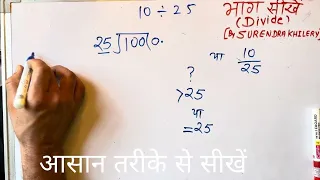 10 ÷ 25
भाग सीखें
(Divide)
[By SURENDRA KHILERY]
25 ⟌100(0.
या 10/25
?
>25
या
=25
आसान तरीके से सीखें